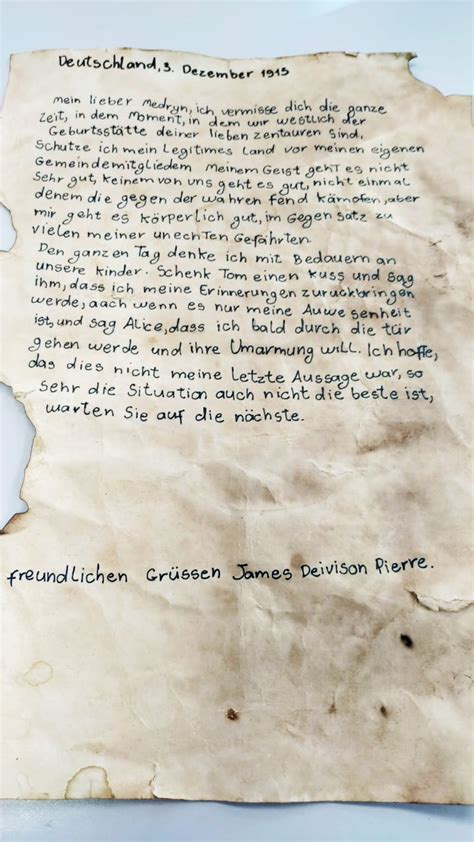 Deutschland, 3. Dezember 1915
mein lieber Medryn, ich vermisse dich die ganze
Zeit, in dem Moment, in dem wir westlich der
Geburtsstätte deiner lieben zentauren sind,
Schutze ich mein Legitimes Land vor meinen eigenen
Gemeindemitgliedem Meinem Geist geht es nicht
sehr gut, keinem von uns geht es gut, nicht einmal
denem die gegen der wahren fend kämpfen, aber
mir geht es körperlich gut, im Gegen satz zu
vielen meiner unechten Gefährten.
Den ganzen Tag denke ich mit Bedauern an
unsere kinder. Schenk Tom einen kuss und sag
ihm, dass ich meine Erinnerungen zurückbringen
werde, aach wenn es nur meine Auwe senheit
ist, und sag Alice, dass ich bald durch die tür
gehen werde und ihre Umarmung will. Ich hoffe,
das dies nicht meine letzte Aussage war, so
sehr die Situation auch nicht die beste ist,
warten Sie auf die nächste.
freundlichen Grüssen James Deivison Pierre.